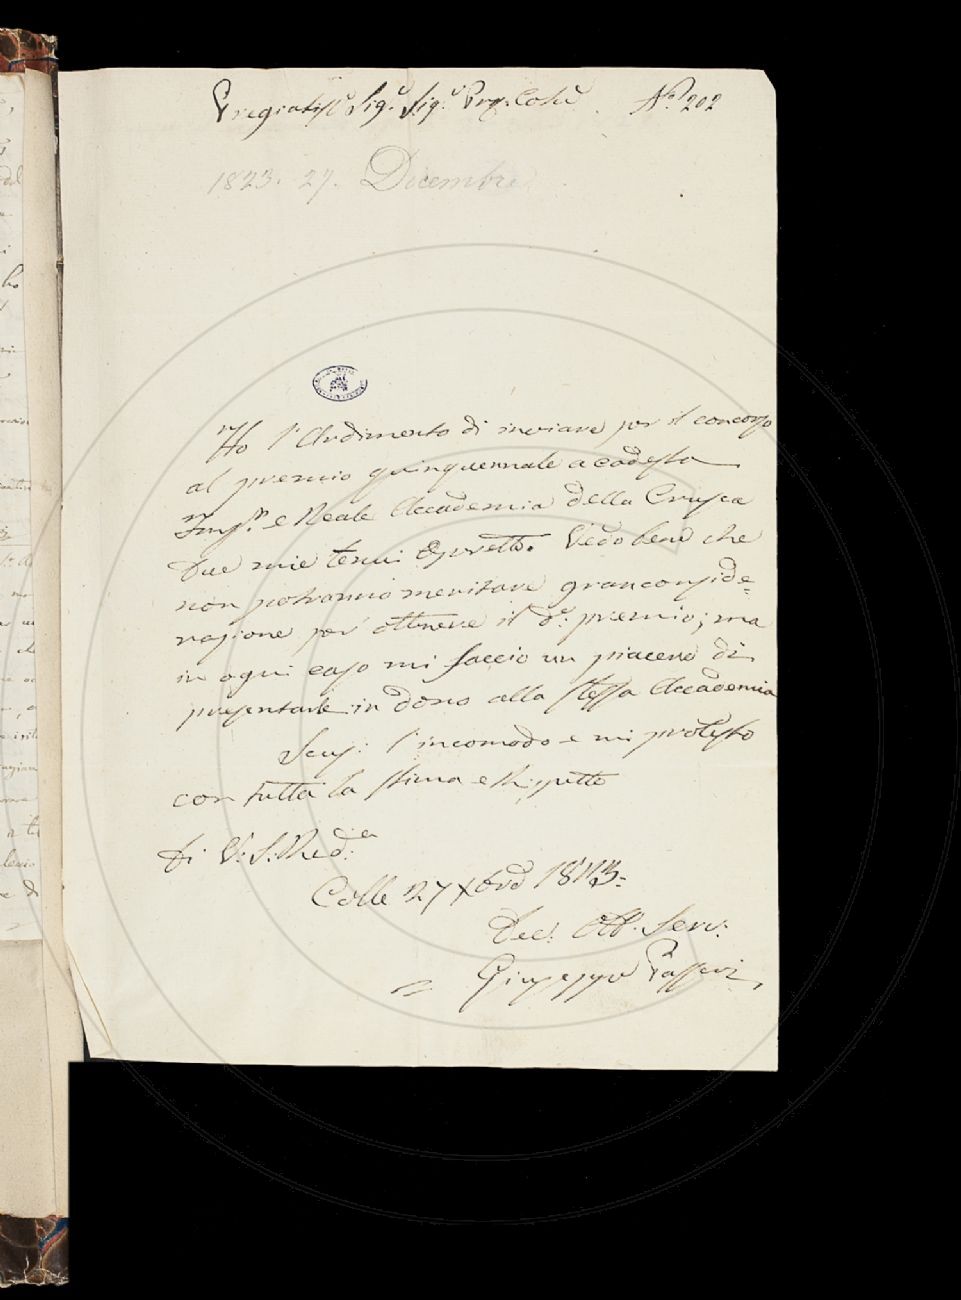 Pregiatiss.e Sig.e Sig.e Pro.e Col.e N.° 202
1823. 27. Dicembre
Ho l'Ardimento di inviare per il concorso
al premio quinquennale a codesta
Imp.le e Reale Accademia della Crusca
due mie tenui Vedo bene che
non potranno meritare gran conside=
razione per ottenere il d.° premio; ma
in ogni caso mi faccio un piacere di
presentarle in dono alla stessa Accademia
Scusi l'incomodo e mi protesto
con tutta la stima e rispetto
di V. S. Red.a
Colle 27 Xbre 1823.
Dev. Obb. Serv.
Giuseppe Passeri